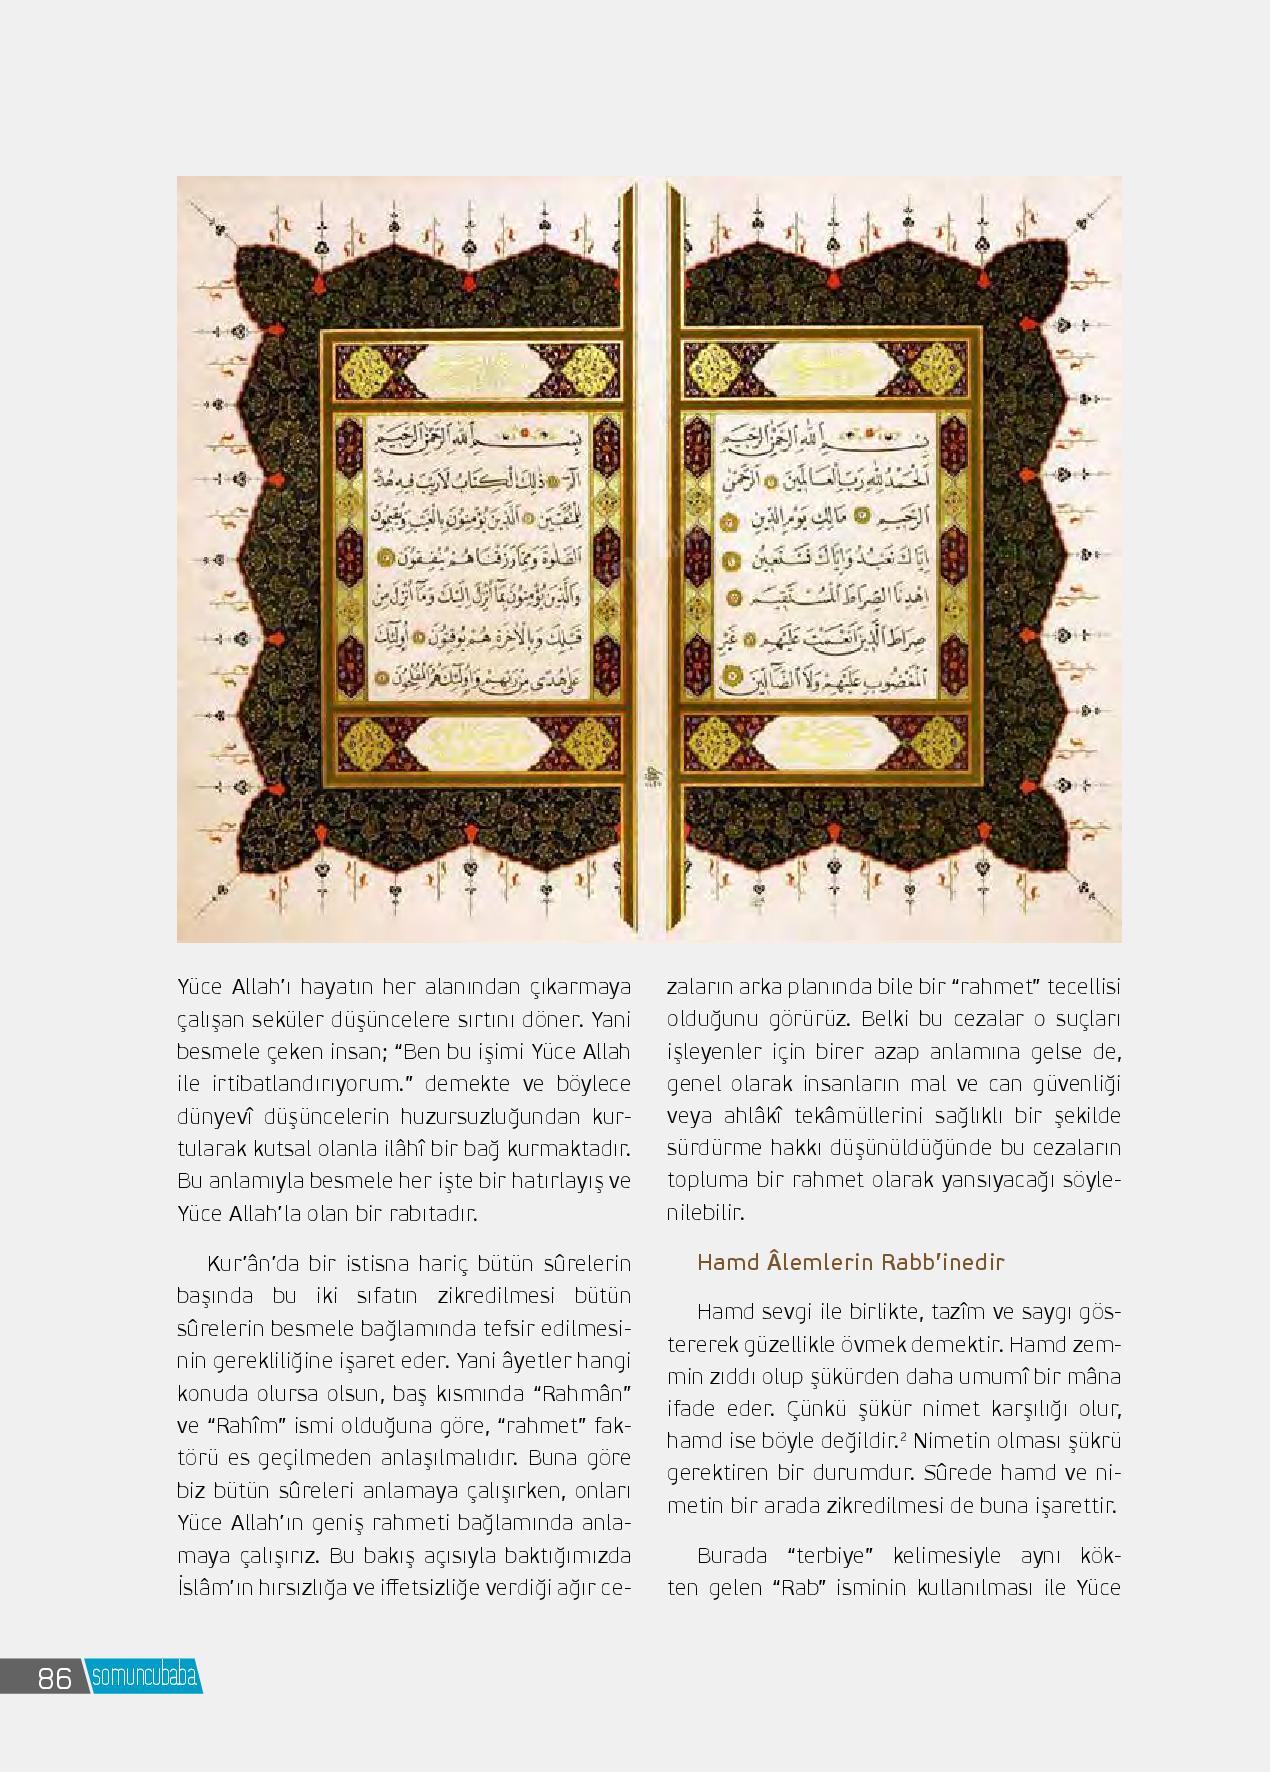 بِسْمِ اللهِ الرَّحْمٰنِ الرَّحِيمِ
اَلْحَمْدُ لِلّٰهِ رَبِّ الْعَالَمِينَ ۝ اَلرَّحْمٰنِ
الرَّحِيمِ ۝ مَالِكِ يَوْمِ الدِّينِ ۝
اِيَّاكَ نَعْبُدُ وَاِيَّاكَ نَسْتَعِينُ ۝
اِهْدِنَا الصِّرَاطَ الْمُسْتَقِيمَ ۝
صِرَاطَ الَّذِينَ اَنْعَمْتَ عَلَيْهِمْ ۝ غَيْرِ
الْمَغْضُوبِ عَلَيْهِمْ وَلَا الضَّالِّينَ ۝
بِسْمِ اللهِ الرَّحْمٰنِ الرَّحِيمِ
الٓمٓ ۝ ذٰلِكَ الْكِتَابُ لَا رَيْبَ فِيهِ هُدًى
لِلْمُتَّقِينَ ۝ اَلَّذِينَ يُؤْمِنُونَ بِالْغَيْبِ وَيُقِيمُونَ
الصَّلٰوةَ وَمِمَّا رَزَقْنَاهُمْ يُنْفِقُونَ ۝
وَالَّذِينَ يُؤْمِنُونَ بِمَٓا اُنْزِلَ اِلَيْكَ وَمَٓا اُنْزِلَ مِنْ
قَبْلِكَ وَبِالْاٰخِرَةِ هُمْ يُوقِنُونَ ۝ اُولٰٓئِكَ
عَلٰى هُدًى مِنْ رَبِّهِمْ وَاُولٰٓئِكَ هُمُ الْمُفْلِحُونَ ۝
Yüce Allah’ı hayatın her alanından çıkarmaya
çalışan seküler düşüncelere sırtını döner. Yani
besmele çeken insan; “Ben bu işimi Yüce Allah
ile irtibatlandırıyorum.” demekte ve böylece
dünyevî düşüncelerin huzursuzluğundan kur-
tularak kutsal olanla ilâhî bir bağ kurmaktadır.
Bu anlamıyla besmele her işte bir hatırlayış ve
Yüce Allah’la olan bir rabıtadır.
Kur’ân’da bir istisna hariç bütün sûrelerin
başında bu iki sıfatın zikredilmesi bütün
sûrelerin besmele bağlamında tefsir edilmesi-
nin gerekliliğine işaret eder. Yani âyetler hangi
konuda olursa olsun, baş kısmında “Rahmân”
ve “Rahîm” ismi olduğuna göre, “rahmet” fak-
törü es geçilmeden anlaşılmalıdır. Buna göre
biz bütün sûreleri anlamaya çalışırken, onları
Yüce Allah’ın geniş rahmeti bağlamında anla-
maya çalışırız. Bu bakış açısıyla baktığımızda
İslâm’ın hırsızlığa ve iffetsizliğe verdiği ağır ce-
zaların arka planında bile bir “rahmet” tecellisi
olduğunu görürüz. Belki bu cezalar o suçları
işleyenler için birer azap anlamına gelse de,
genel olarak insanların mal ve can güvenliği
veya ahlâkî tekâmüllerini sağlıklı bir şekilde
sürdürme hakkı düşünüldüğünde bu cezaların
topluma bir rahmet olarak yansıyacağı söyle-
nilebilir.
Hamd Âlemlerin Rabb’inedir
Hamd sevgi ile birlikte, tazîm ve saygı gös-
tererek güzellikle övmek demektir. Hamd zem-
min zıddı olup şükürden daha umumî bir mâna
ifade eder. Çünkü şükür nimet karşılığı olur,
hamd ise böyle değildir.² Nimetin olması şükrü
gerektiren bir durumdur. Sûrede hamd ve ni-
metin bir arada zikredilmesi de buna işarettir.
Burada “terbiye” kelimesiyle aynı kök-
ten gelen “Rab” isminin kullanılması ile Yüce
86 somuncubaba